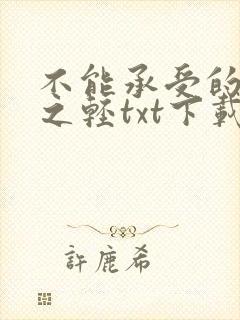 不能承受的
之轻txt下載
許鹿希